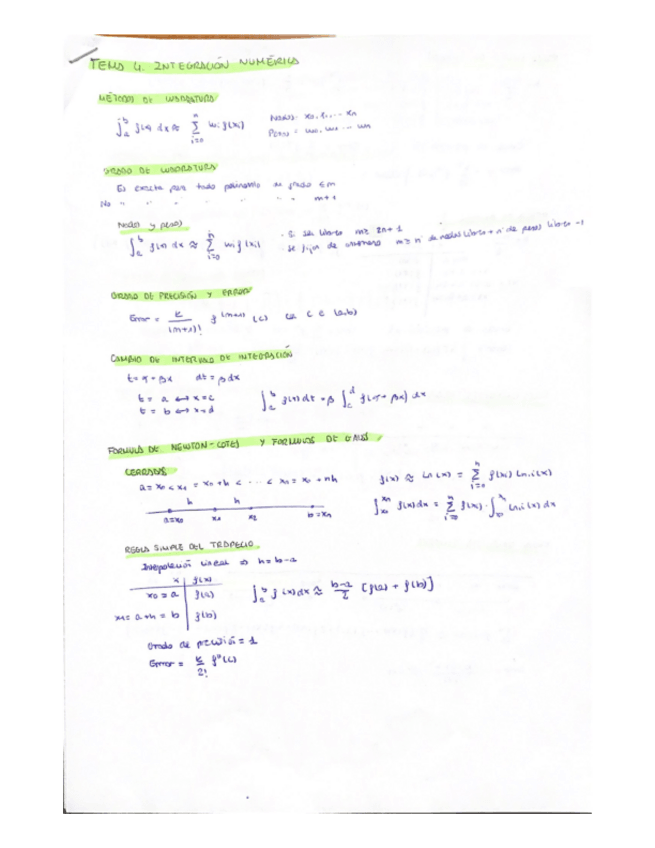 TEMA 4. INTEGRACIÓN NUMÉRICA
MÉTODOS DE CUADRATURA
∫_a^b f(x) dx ≈ Σ_{i=0}^n wi f(xi) Nodos: x0, x1, ... xn
Pesos: w0, w1 ... wn
GRADO DE CUADRATURA
Es exacta para todo polinomio de grado ≤ m
No " " " " " " m+1
Nodos y pesos
∫_a^b f(x) dx ≈ Σ_{i=0}^n wi f(xi) - libres m ≥ 2n+1
- Se fijan de m ≥ nº de nodos libres + nº de pesos libres -1
GRADO DE PRECISIÓN Y ERROR
Error = k/(m+1)! f^(m+1) (c) c ∈ (a,b)
CAMBIO DE INTERVALO DE INTEGRACIÓN
dt = β dx
t = a ↔ x = c
t = b ↔ x = d
∫_a^b f(t) dt = β ∫_c^d
FORMULA DE NEWTON-COTES Y FORMULAS DE GAUSS
CERRADAS
a = x0 < x1 = x0 + h < ... < xn = x0 + nh f(x) ≈ Ln(x) = Σ_{i=0}^n f(xi) Ln,i(x)
h h
a=x0 x1 x2 b=xn
∫_{x0}^{xn} f(x) dx = Σ_{i=0}^n f(xi) · ∫_{x0}^{xn} Ln,i(x) dx
REGLA SIMPLE DEL TRAPECIO
Interpolación lineal ⇒ h = b-a
x f(x)
x0 = a f(a) ∫_a^b f(x) dx ≈ b-a/2 [f(a) + f(b)]
x1 = a+h = b f(b)
Grado de precisión = 1
Error = k/2! f''(c)